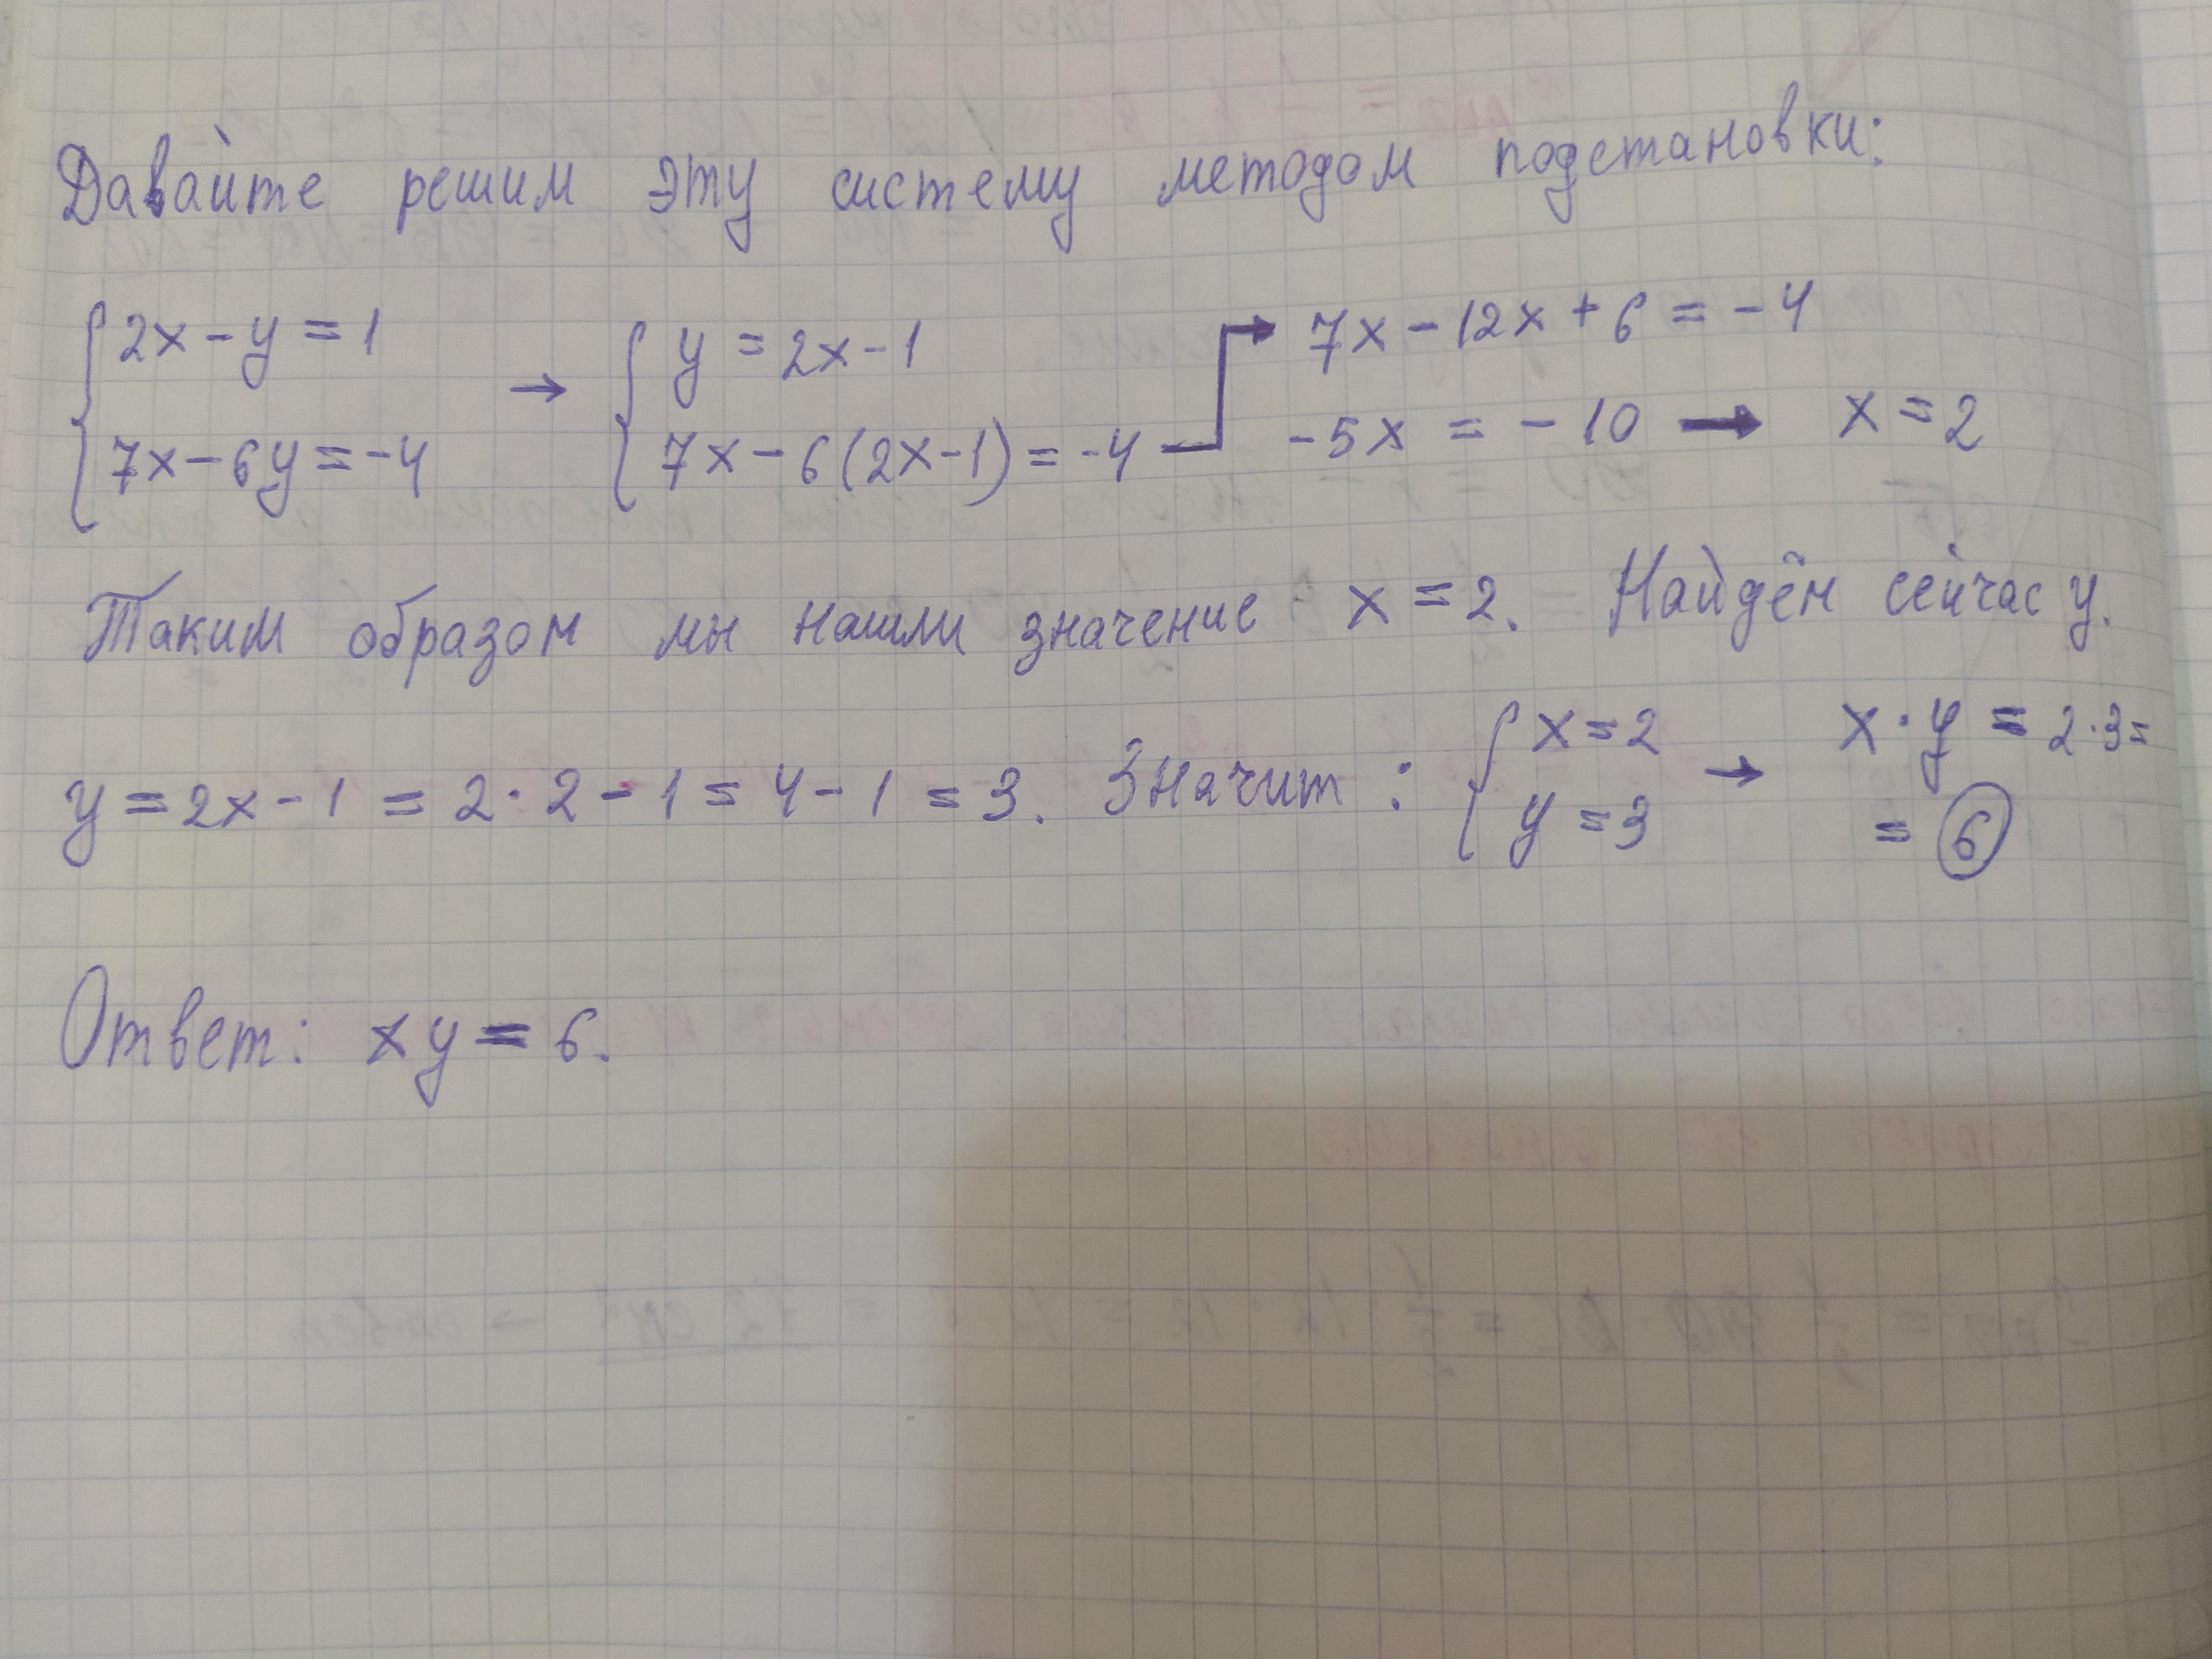 Давайте решим эту систему методом подстановки:
{2x-y=1 → {y=2x-1 → 7x-12x+6=-4
{7x-6y=-4 {7x-6(2x-1)=-4 -5x=-10 → x=2
Таким образом мы нашли значение x=2. Найдём сейчас y.
y=2x-1=2·2-1=4-1=3. Значит: {x=2 → x·y=2·3=
{y=3 =6
Ответ: xy=6.